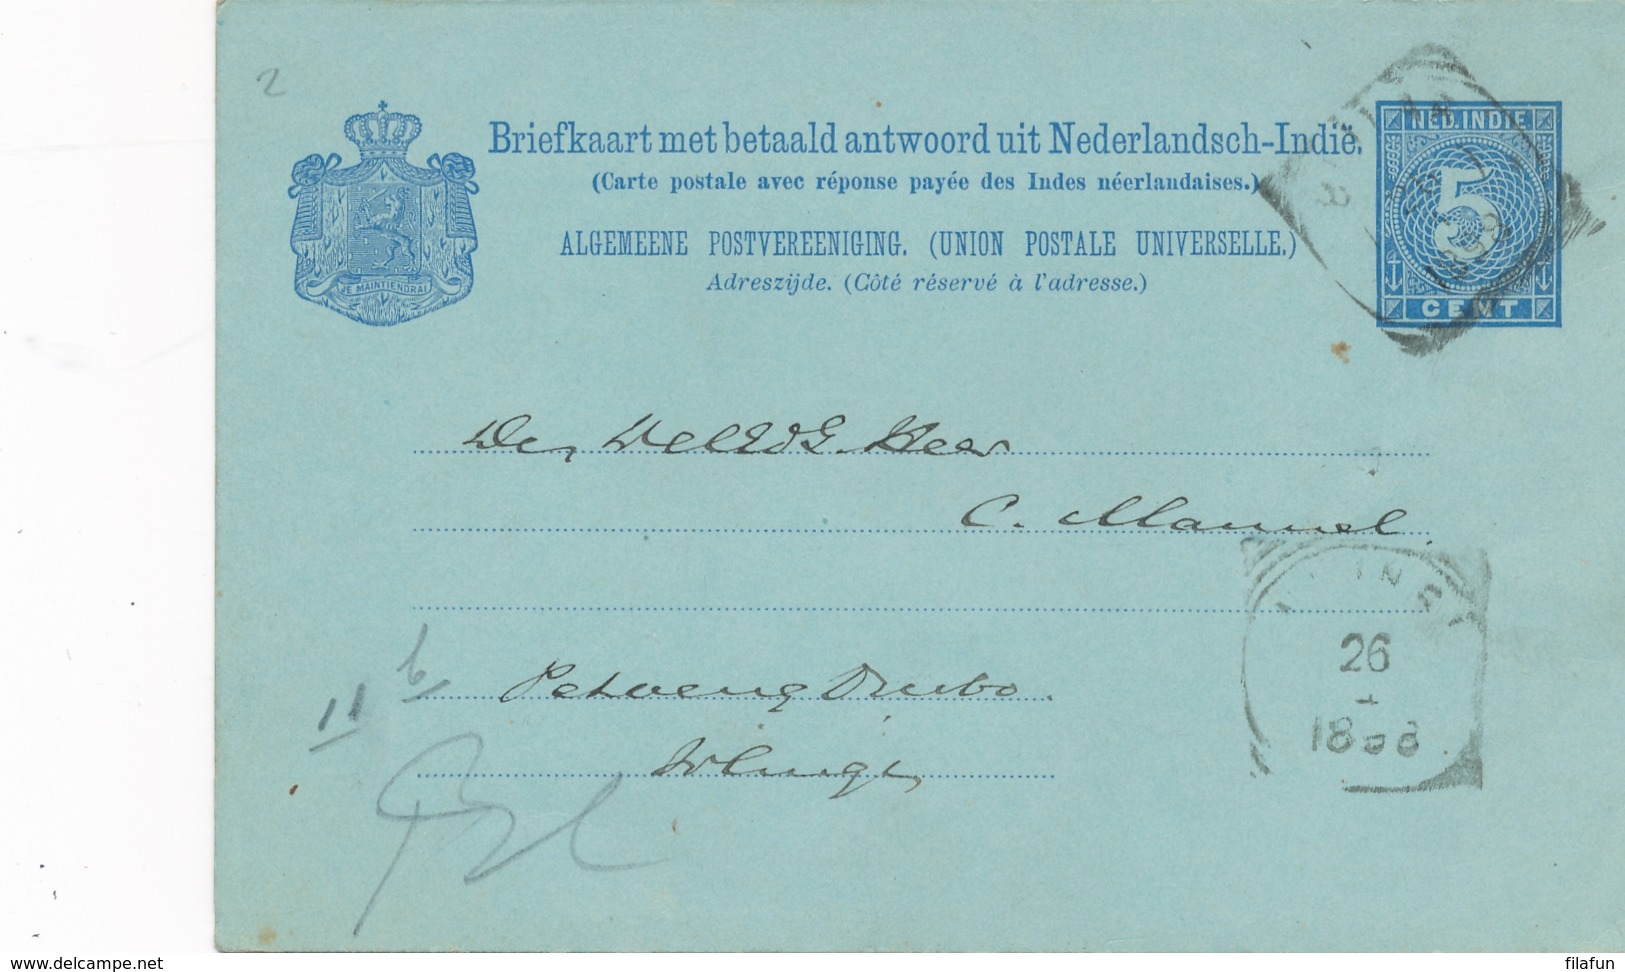 2
Briefkaart met betaald antwoord uit Nederlandsch-Indië.
(Carte postale avec réponse payée des Indes néerlandaises.)
ALGEMEENE POSTVEREENIGING. (UNION POSTALE UNIVERSELLE.)
Adreszijde. (Côté réservé à l'adresse.)
JE MAINTIENDRAI
NED. INDIE
5
CENT
De, WelEdG. Heer
C. Manuel
26
Petoeng Ombo.
Wlingi,
11
b
www.delcampe.net
filafun